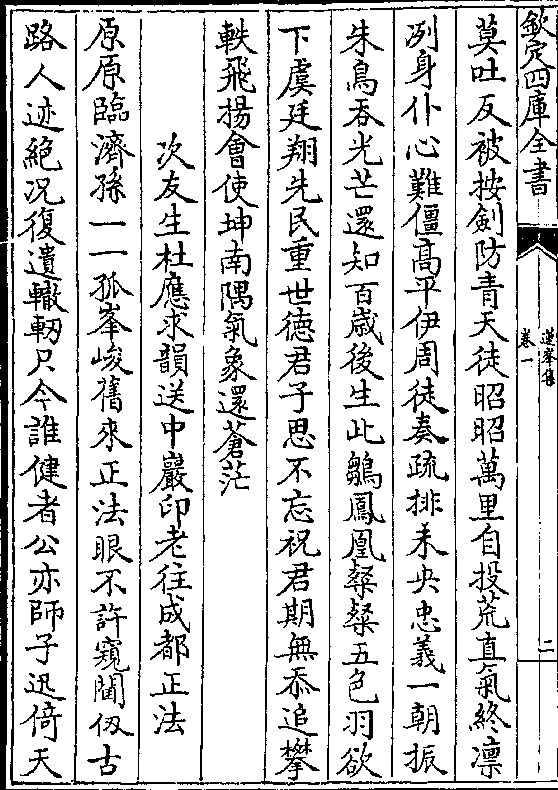 欽定四庫全書
蓮峯集
卷一
二
莫吐反被按劍防青天徒昭昭萬里自投荒直氣終凛
冽身仆心難僵高平伊周徒奏疏排未央忠義一朝振
朱鳥吞光芒還知百歲後生此鶵鳳凰粲粲五色羽欲
下虞廷翔先民重世徳君子思不忘祝君期無忝追攀
軼飛揚會使坤南隅氣象還蒼茫
次友生杜應求韻送中巖印老往成都正法
原原臨濟孫一一孤峯峻舊來正法眼不許窺閫伋古
路人迹絶况復遺轍軔只今誰健者公亦師子迅倚天